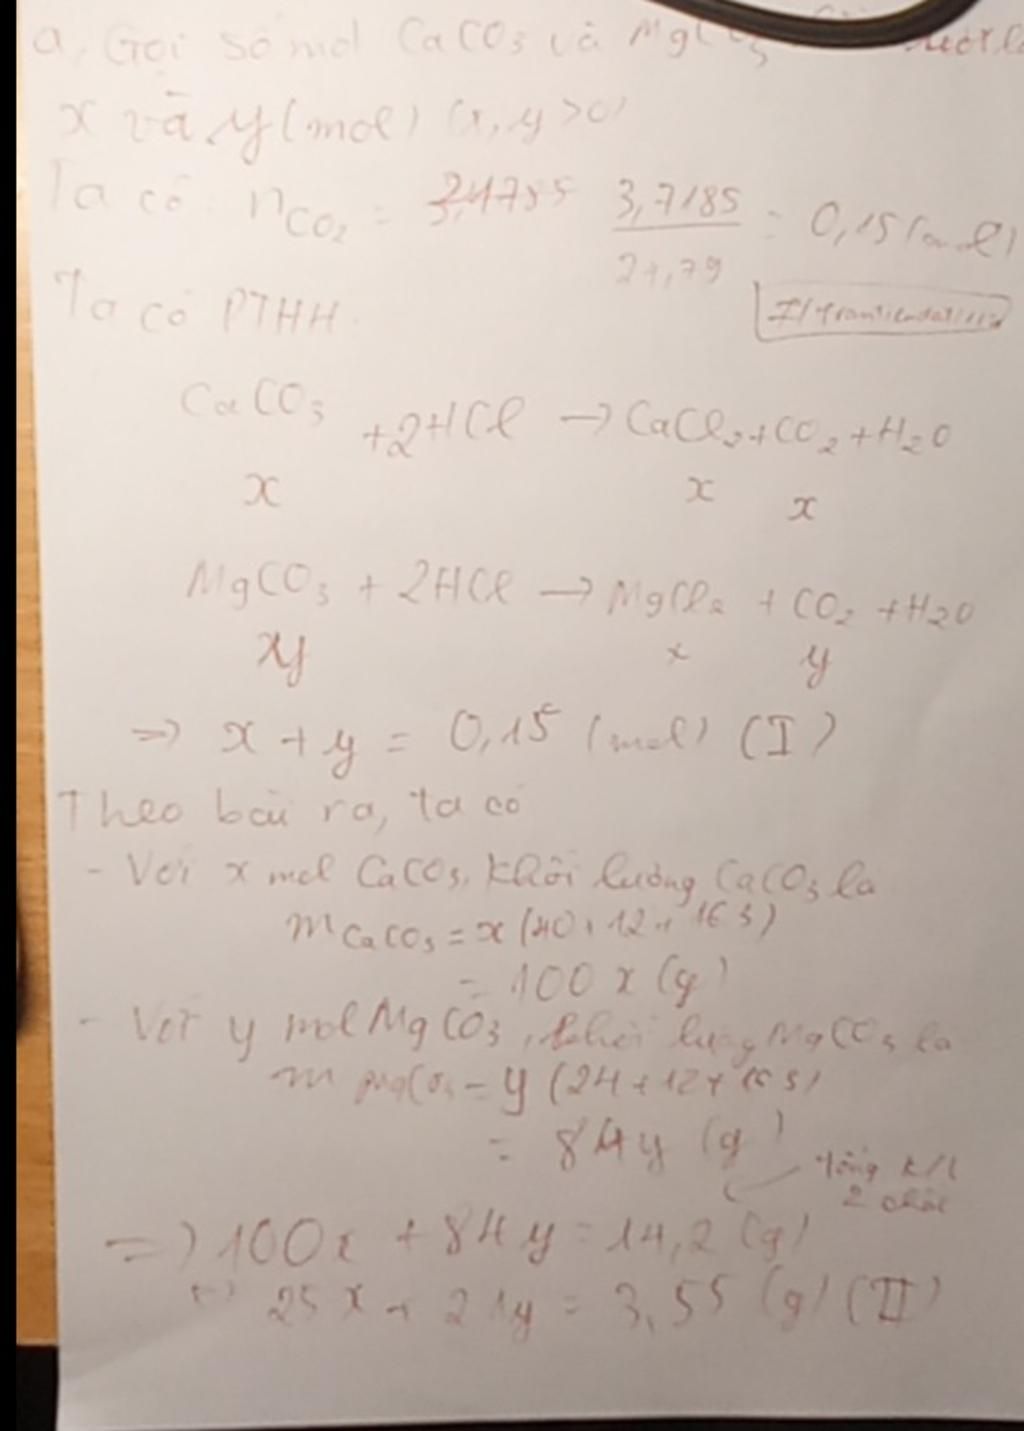 a, Gọi số mol CaCO3 và MgCO3
x và y (mol) (x, y >0)
Ta có: nCO2 = 3,7185 / 24,79 = 0,15 (mol)
Ta có PTHH.
CaCO3 + 2HCl → CaCl2 + CO2 + H2O
x x x
MgCO3 + 2HCl → MgCl2 + CO2 + H2O
xy x y
=> x + y = 0,15 (mol) (I)
Theo bài ra, ta có
- Với x mol CaCO3, khối lượng CaCO3 la
mCaCO3 = x (40 + 12 + 16 3)
= 100 x (g)
- Với y mol MgCO3, khối lượng MgCO3 la
m MgCO3 = y (24 + 12 + 16 3)
= 84y (g)
tổng k/l
2 chất
=> 100x + 84y = 14,2 (g)
25x + 21y = 3,55 (g) (II)